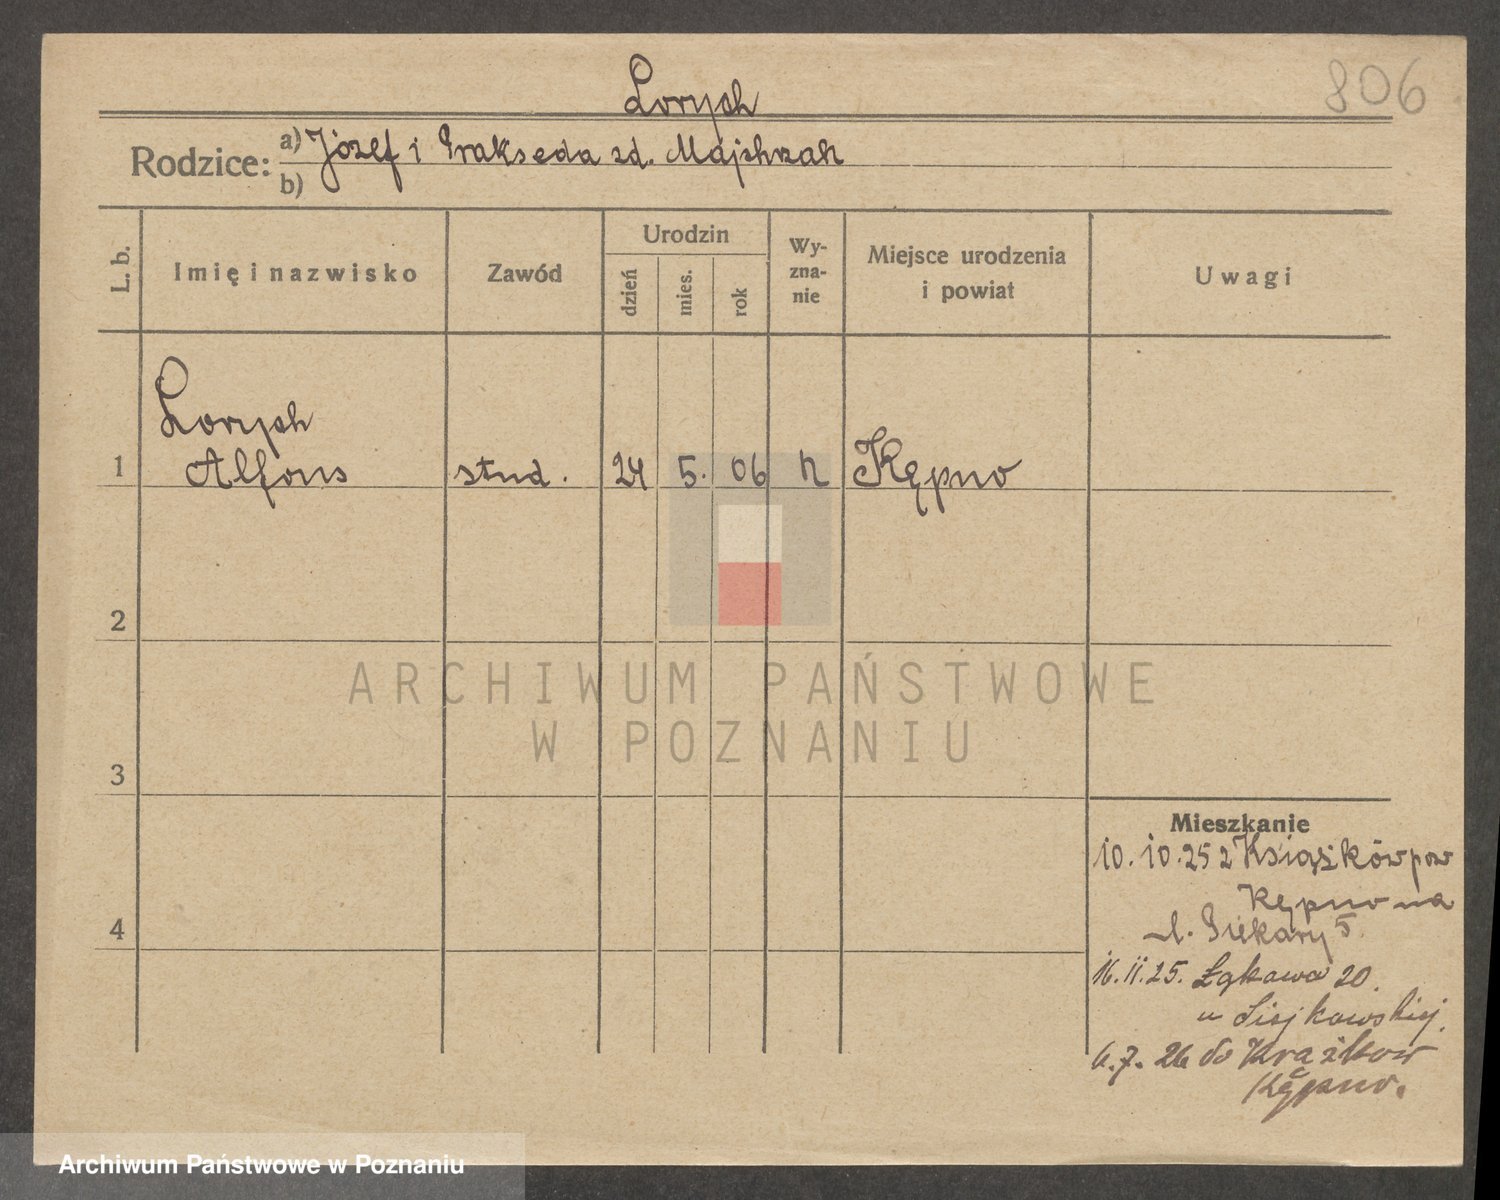 806
Lorych
Rodzice: a) Józef i Prakseda zd. Majchrzak
b)
L. b.
Imię i nazwisko
Zawód
Urodzin
dzień
mies.
rok
Wy-
zna-
nie
Miejsce urodzenia
i powiat
Uwagi
Lorych
1 Alfons stud. 24 5. 06 Kępno
2
3
4
ARCHIWUM PAŃSTWOWE
W POZNANIU
Mieszkanie
10.10.25 z Książków pow
Kępno na
ul. Piekary 5
16.11.25. Łąkowa 20.
u
6.7.26 do
Kępno.
Archiwum Państwowe w Poznaniu